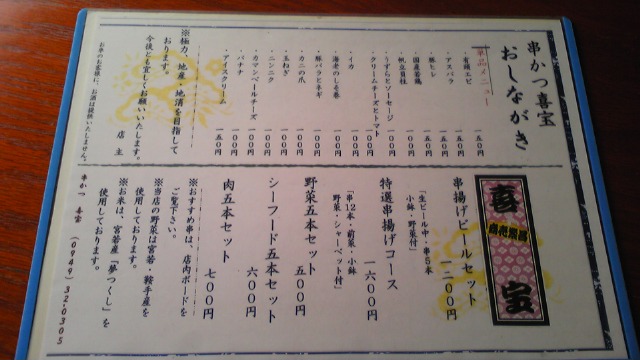 串かつ喜宝
おしながき
単品メニュー
・有頭エビ 一五〇円
・アスパラ 一五〇円
・豚ヒレ 一五〇円
・国産若鶏 一五〇円
・帆立貝柱 一五〇円
・うずらとソーセージ 一〇〇円
・クリームチーズとトマト 一〇〇円
・イカ 一〇〇円
・海老のしそ巻 一〇〇円
・豚バラとネギ 一〇〇円
・カニの爪 一〇〇円
・玉ねぎ 一〇〇円
・ニンニク 一〇〇円
・カマンベールチーズ 一〇〇円
・バナナ 一〇〇円
・アイスクリーム 一五〇円
※極力、地産・地消を目指して
おります。
今後とも宜しくお願いいたします。
店 主
お車のお客様に、お酒は提供いたしません。
喜
宝
串揚げビールセット
一二〇〇円
「生ビール中・串5本
小鉢・野菜付」
特選串揚げコース
一六〇〇円
「串12本・前菜・小鉢
野菜・シャーベット付」
野菜五本セット
五〇〇円
シーフード五本セット
六〇〇円
肉五本セット
七〇〇円
※おすすめ串は、店内ボードを
ご覧下さい。
※当店の野菜は宮若・鞍手産を
使用しております。
※お米は、宮若産「夢つくし」を
使用しております。
串かつ 喜宝 (0949) 32-0305